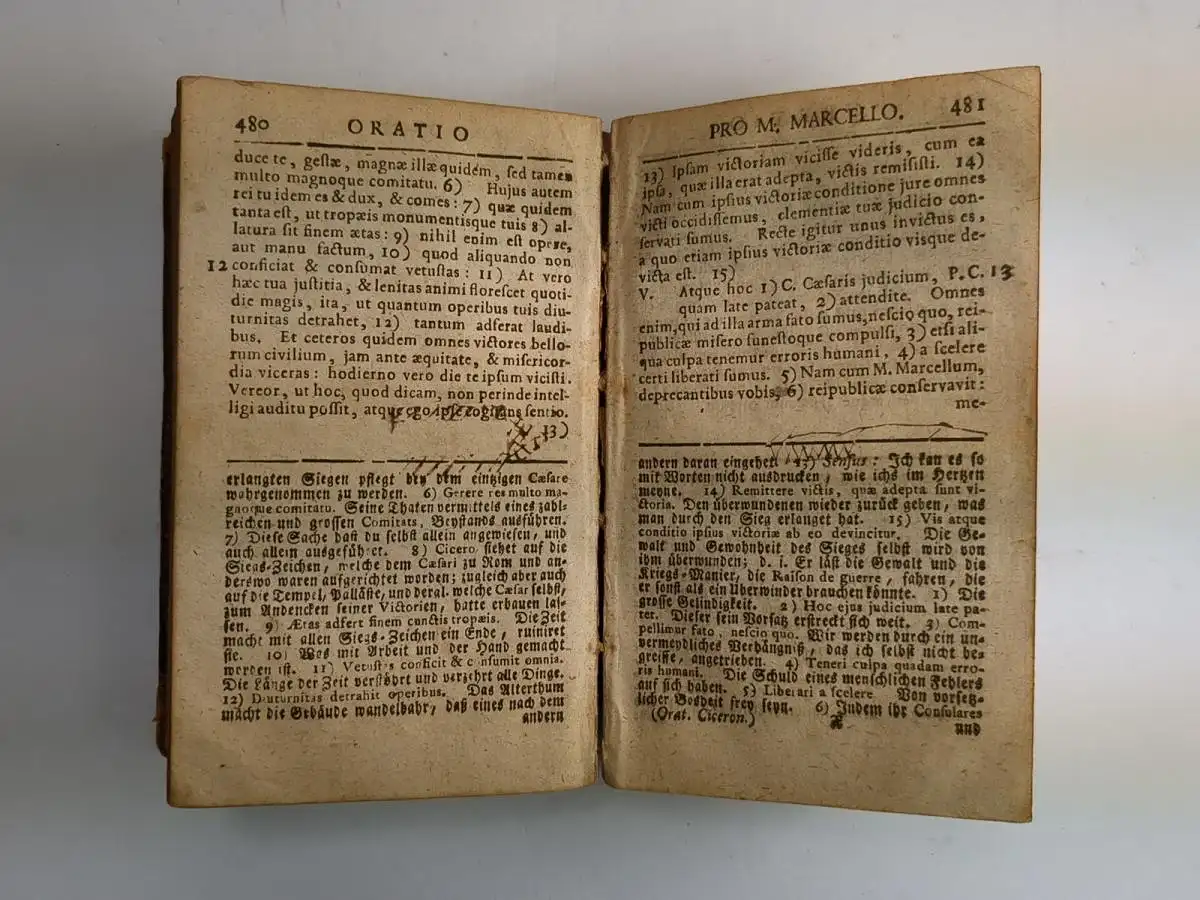 480 ORATIO
duce te, gestæ, magnæ illæ quidem, sed tamen
multo magnoque comitatu. 6) Hujus autem
rei tu idem es & dux, & comes: 7) quæ quidem
tanta est, ut tropæis monumentisque tuis 8) al-
latura sit finem ætas: 9) nihil enim est opere,
aut manu factum, 10) quod aliquando non
12 conficiat & consumat vetustas: 11) At vero
hæc tua justitia, & lenitas animi florescet quoti-
die magis, ita, ut quantum operibus tuis diu-
turnitas detrahet, 12) tantum adferat laudi-
bus. Et ceteros quidem omnes victores bello-
rum civilium, jam ante æquitate, & misericor-
dia viceras: hodierno vero die te ipsum vicisti.
Vereor, ut hoc, quod dicam, non perinde intel-
ligi auditu possit, atque ego ipse cogitans sentio.
13)
erlangten Siegen pflegt bey dem eintzigen Cæsare
wahrgenommen zu werden. 6) Gerere res multo ma-
gnoque comitatu. Seine Thaten vermittels eines zahl-
reichen und grossen Comitats, Beystands ausführen.
7) Diese Sache hast du selbst allein angewiesen, und
auch allein ausgeführet. 8) Cicero siehet auf die
Siegs-Zeichen, welche dem Cæsari zu Rom und an-
derswo waren aufgerichtet worden; zugleich aber auch
auf die Tempel, Palläste, und deral. welche Cæsar selbst,
zum Andencken seiner Victorien, hatte erbauen las-
sen. 9) Ætas adfert finem cunctis tropæis. Die Zeit
macht mit allen Siegs-Zeichen ein Ende, ruiniret
sie. 10) Was mit Arbeit und der Hand gemacht
worden ist. 11) Vetustas conficit & consumit omnia.
Die Länge der Zeit verstöhrt und verzehrt alle Dinge.
12) Diuturnitas detrahit operibus. Das Alterthum
macht die Gebäude wandelbahr, daß eines nach dem
andern
PRO M. MARCELLO. 481
13) Ipsam victoriam vicisse videris, cum ea
ipsa, quæ illa erat adepta, victis remisisti. 14)
Nam cum ipsius victoriæ conditione jure omnes
victi occidissemus, clementiæ tuæ judicio con-
servati sumus. Recte igitur unus invictus es,
a quo etiam ipsius victoriæ conditio visque de-
victa est. 15)
V. Atque hoc 1) C. Cæsaris judicium, P. C. 13
quam late pateat, 2) attendite. Omnes
enim, qui ad illa arma fato sumus, nescio quo, rei-
publicæ misero funestoque compulsi, 3) etsi ali-
qua culpa tenemur erroris humani, 4) a scelere
certi liberati sumus. 5) Nam cum M. Marcellum,
deprecantibus vobis, 6) reipublicæ conservavit:
me-
andern daran eingehet. 13) Sensus: Ich kan es so
mit Worten nicht ausdrucken, wie ichs im Hertzen
meyne. 14) Remittere victis, quæ adepta sunt vi-
ctoria. Den überwundenen wieder zurück geben, was
man durch den Sieg erlanget hat. 15) Vis atque
conditio ipsius victoriæ ab eo devincitur. Die Ge-
walt und Gewohnheit des Sieges selbst wird von
ihm überwunden; d. i. Er läst die Gewalt und die
Kriegs-Manier, die Raison de guerre, fahren, die
er sonst als ein Überwinder brauchen könnte. 1) Die
grosse Gelindigkeit. 2) Hoc ejus judicium late pa-
tet. Dieser sein Vorsatz erstreckt sich weit. 3) Com-
pellimur fato, nescio quo. Wir werden durch ein un-
vermeydliches Verhängniß, das ich selbst nicht be-
greiffe, angetrieben. 4) Teneri culpa quadam erro-
ris humani. Die Schuld eines menschlichen Fehlers
auf sich haben. 5) Liberari a scelere Von vorsetz-
licher Bosheit frey seyn. 6) Indem ihr Consulares
(Orat. Ciceron.)
und